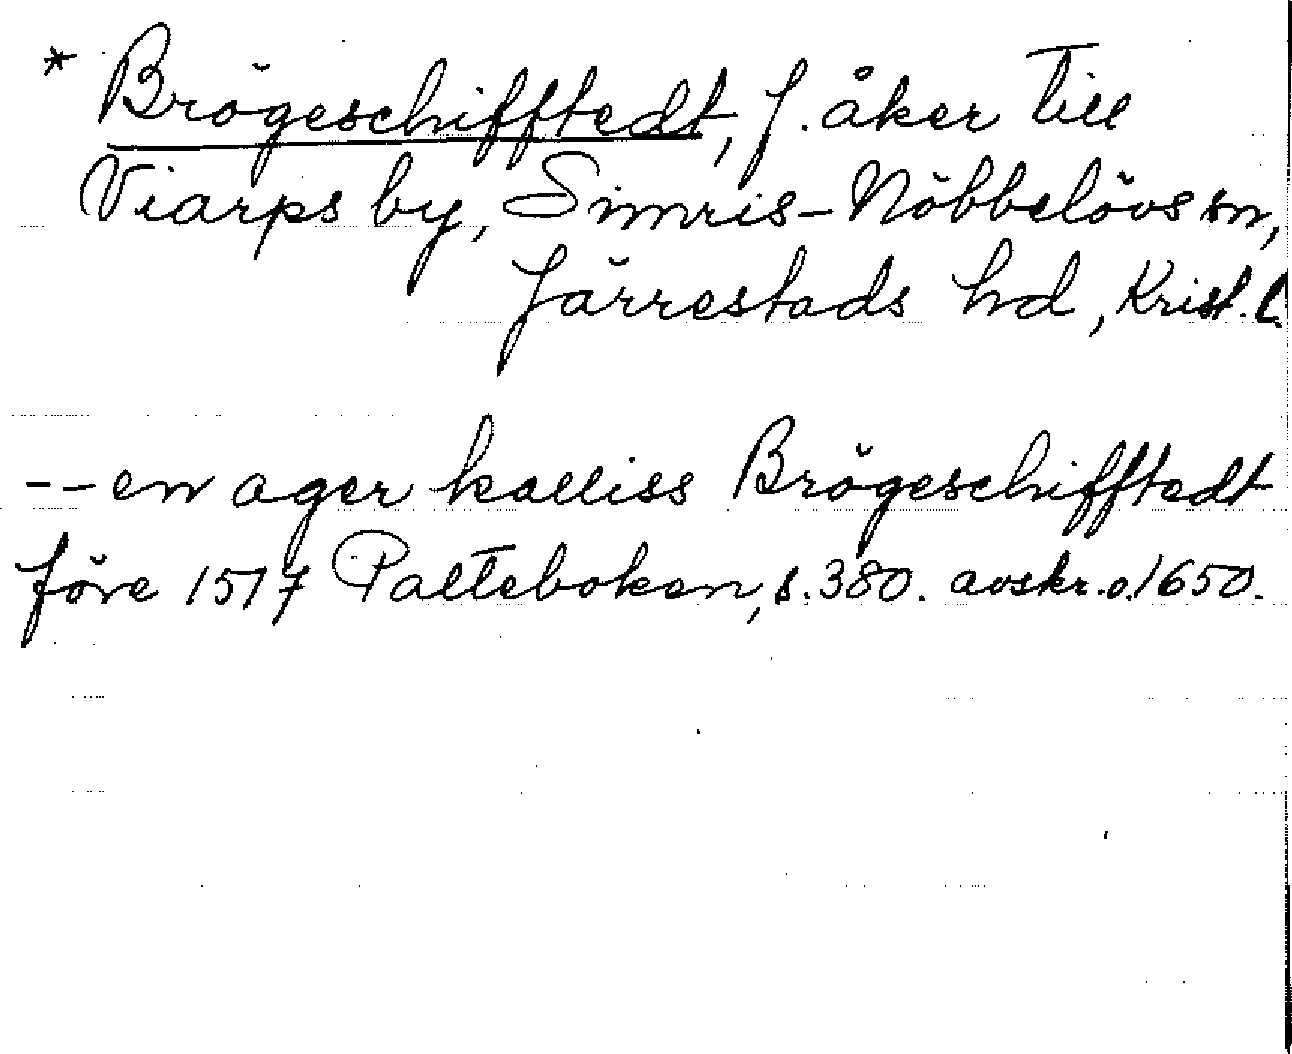 * Brögeschifftedt, f. åker till
Viarps by, Simris-Nöbbelövs sn,
Järrestads hd, Krist. l.
-- en ager kalliss Brögeschifftedt
före 1517 Palteboken, s. 380. avskr. o. 1650.